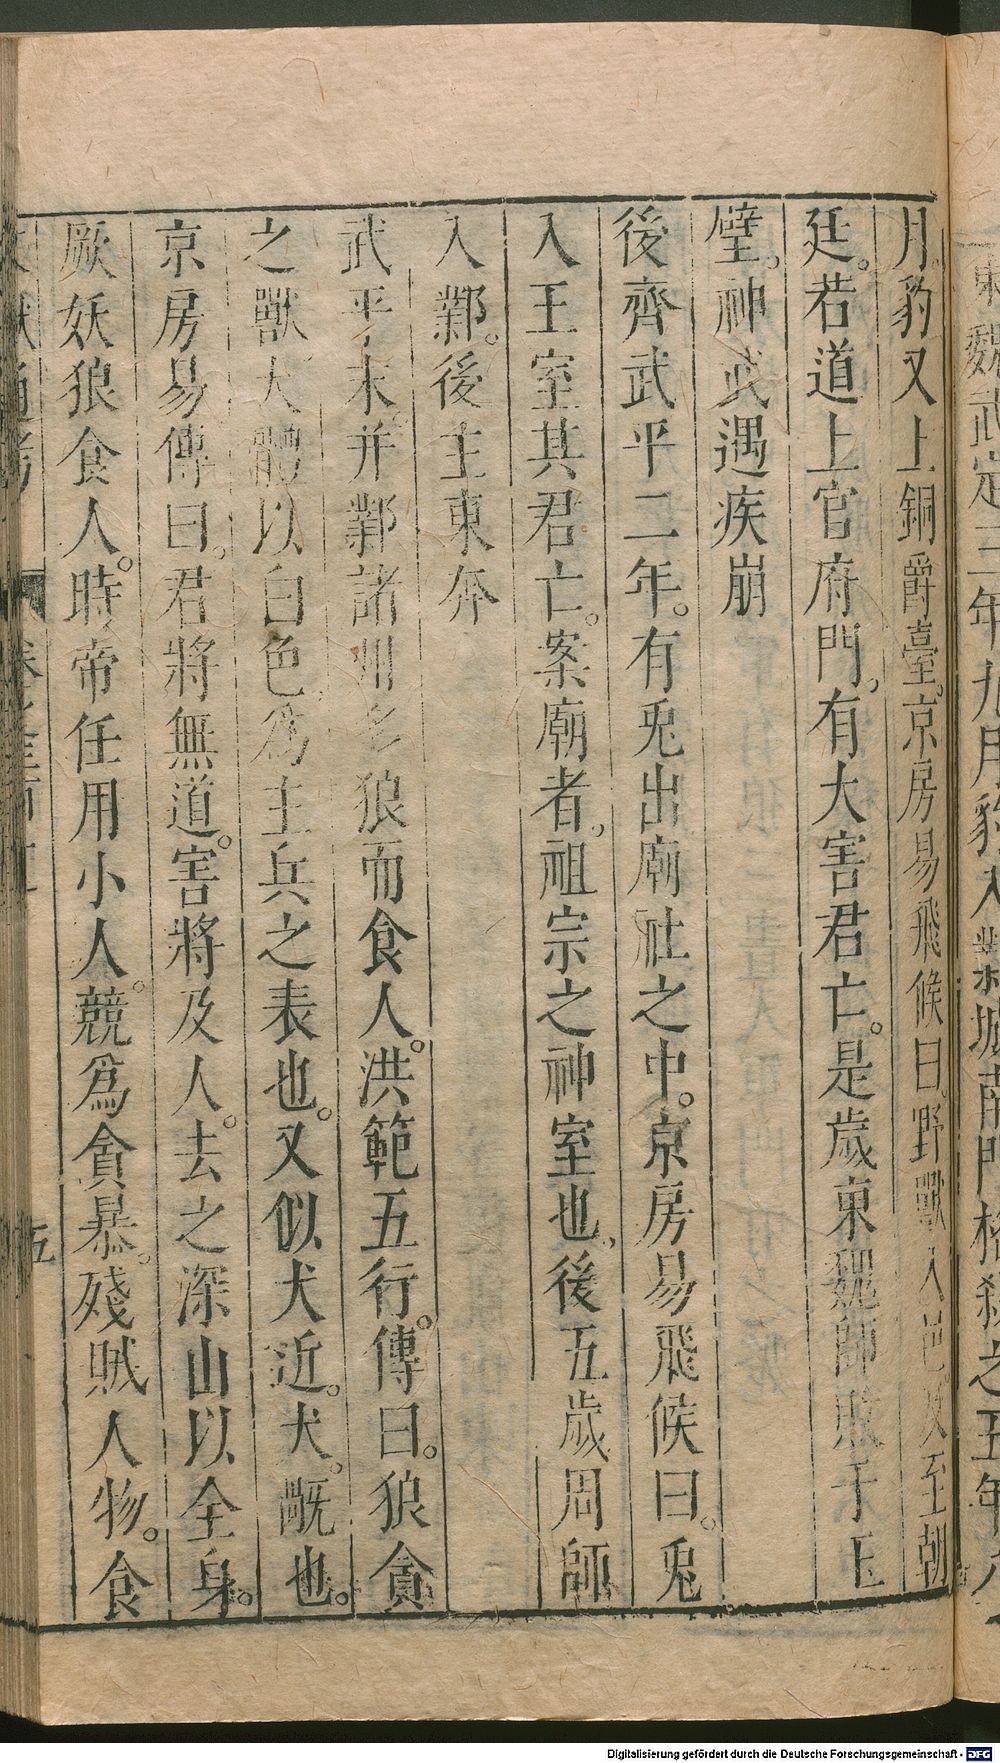 東魏武定三年九月豹入鄴城南門格殺之五年八
月豹又上銅爵臺京房易飛候曰野獸入邑及至朝
廷若道上官府門有大害君亡是歲東魏師敗于玉
壁神武遇疾崩
後齊武平二年有兎出廟社之中京房易飛候曰兎
入王室其君亡案廟者祖宗之神室也後五歲周師
入鄴後主東奔
武平末并鄴諸州多狼而食人洪範五行傳曰狼貪
之獸大體以白色為主兵之表也又似犬近犬旤也
京房易傳曰君將無道害將及人去之深山以全身
厥妖狼食人時帝任用小人競為貪暴殘賊人物食
五
Digitalisierung gefördert durch die Deutsche Forschungsgemeinschaft - DFG